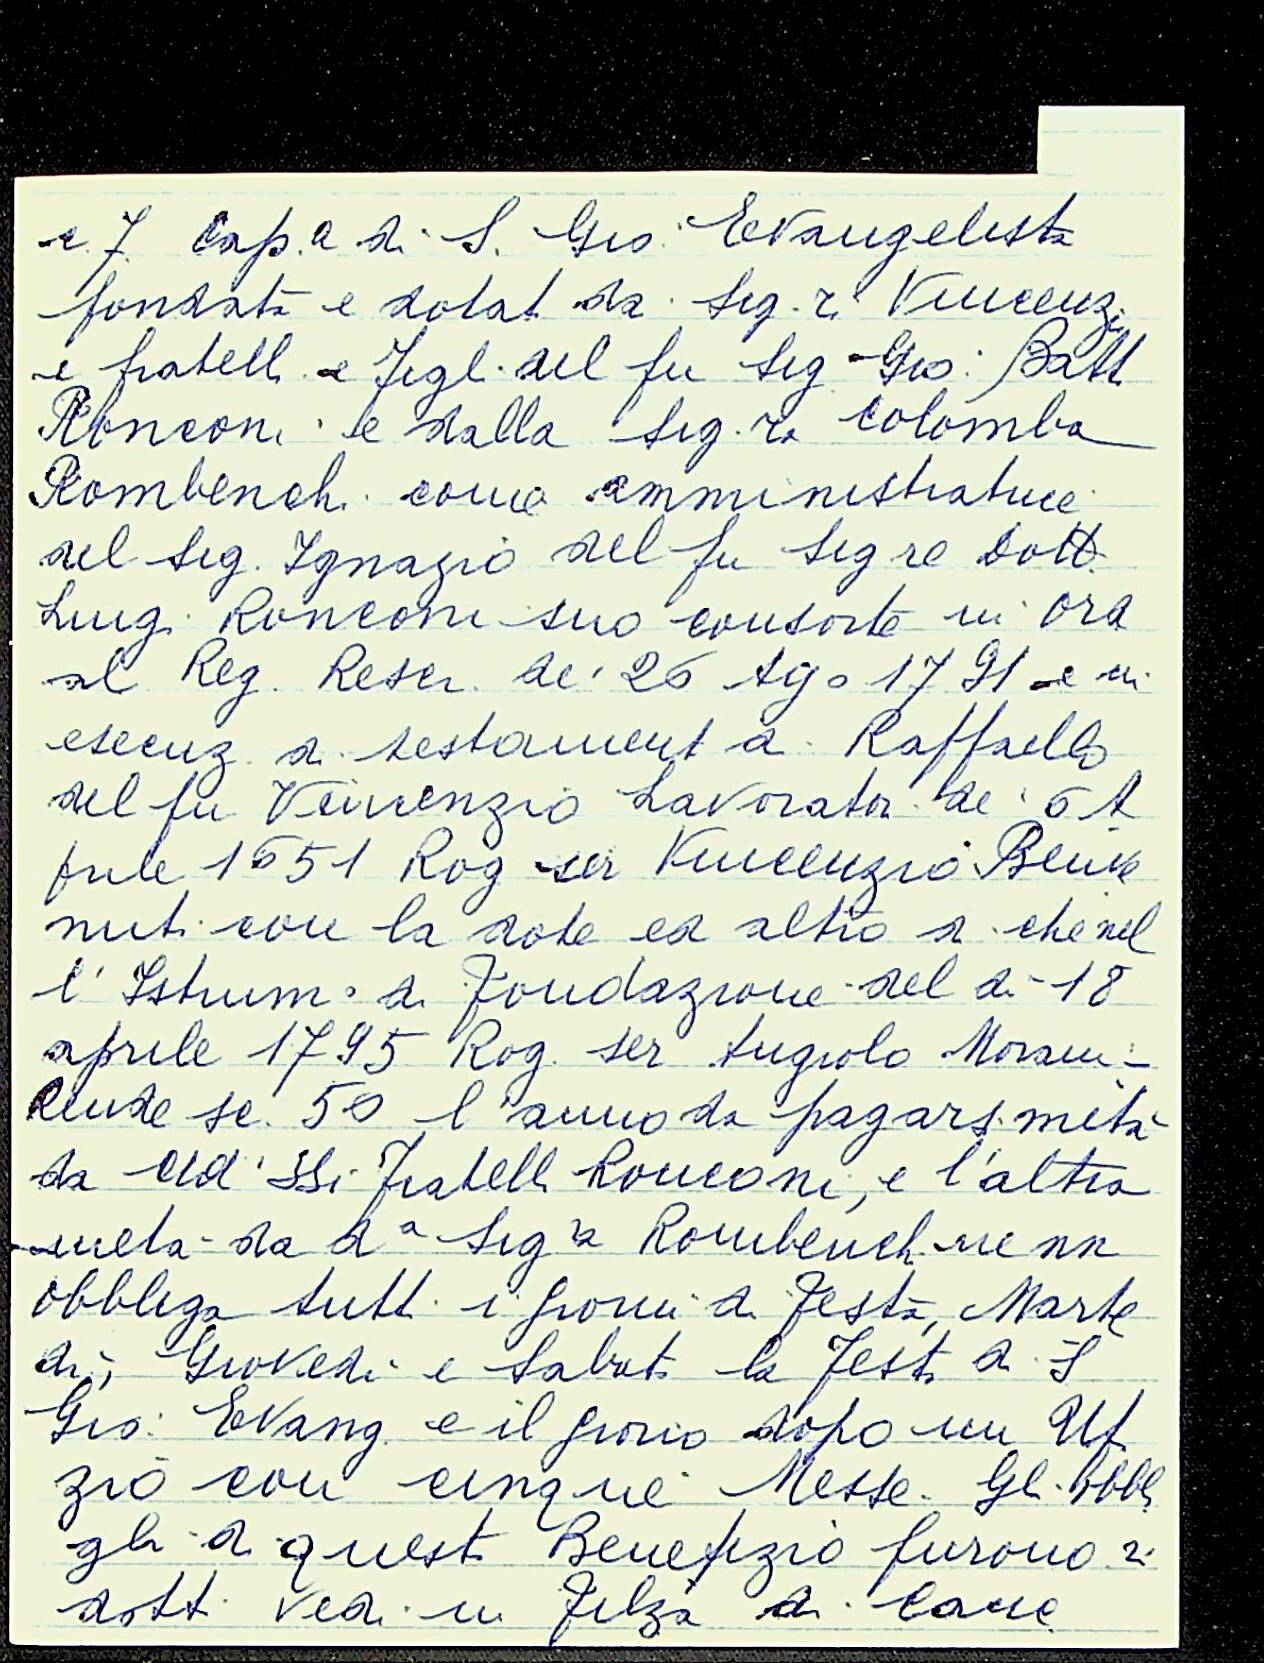 e 7 Cap.a di S. Gio: Evangelista
fondata e dotat da Sig.ri Vincenzi
e fratelli e Figl. del fu Sig Gio: Batt
Ronconi e dalla Sig.ra Colomba
Rombench. come amministratrice
del Sig. Ignazio del fu Sig re Dott.
Luigi Ronconi suo consorte in ora
al Reg. Rescr. de' 26 Ago 1791 e in
esecuz di testament di Raffaello
del fu Vincenzio Lavorator de' 6 A
prile 1651 Rog ser Vincenzio Benve
nuti con la dote ed altro di che nel
l'Istrum° di Fondazione del di 18
aprile 1795 Rog. ser Angiolo Morani
Rende sc. 50 l'anno da pagarsi metà
da Fratelli Ronconi, e l'altra
metà da d.a Sig ra Rombench
obbliga tutti i giorni di Festa, Marte
dì, Giovedi e Sabati la Festa di S
Gio: Evang e il giorno dopo un Uf
zio con cinque Messe. Gli Obbli
ghi di questo Benefizio furono ri
dotti Vedi in Filza di Carte